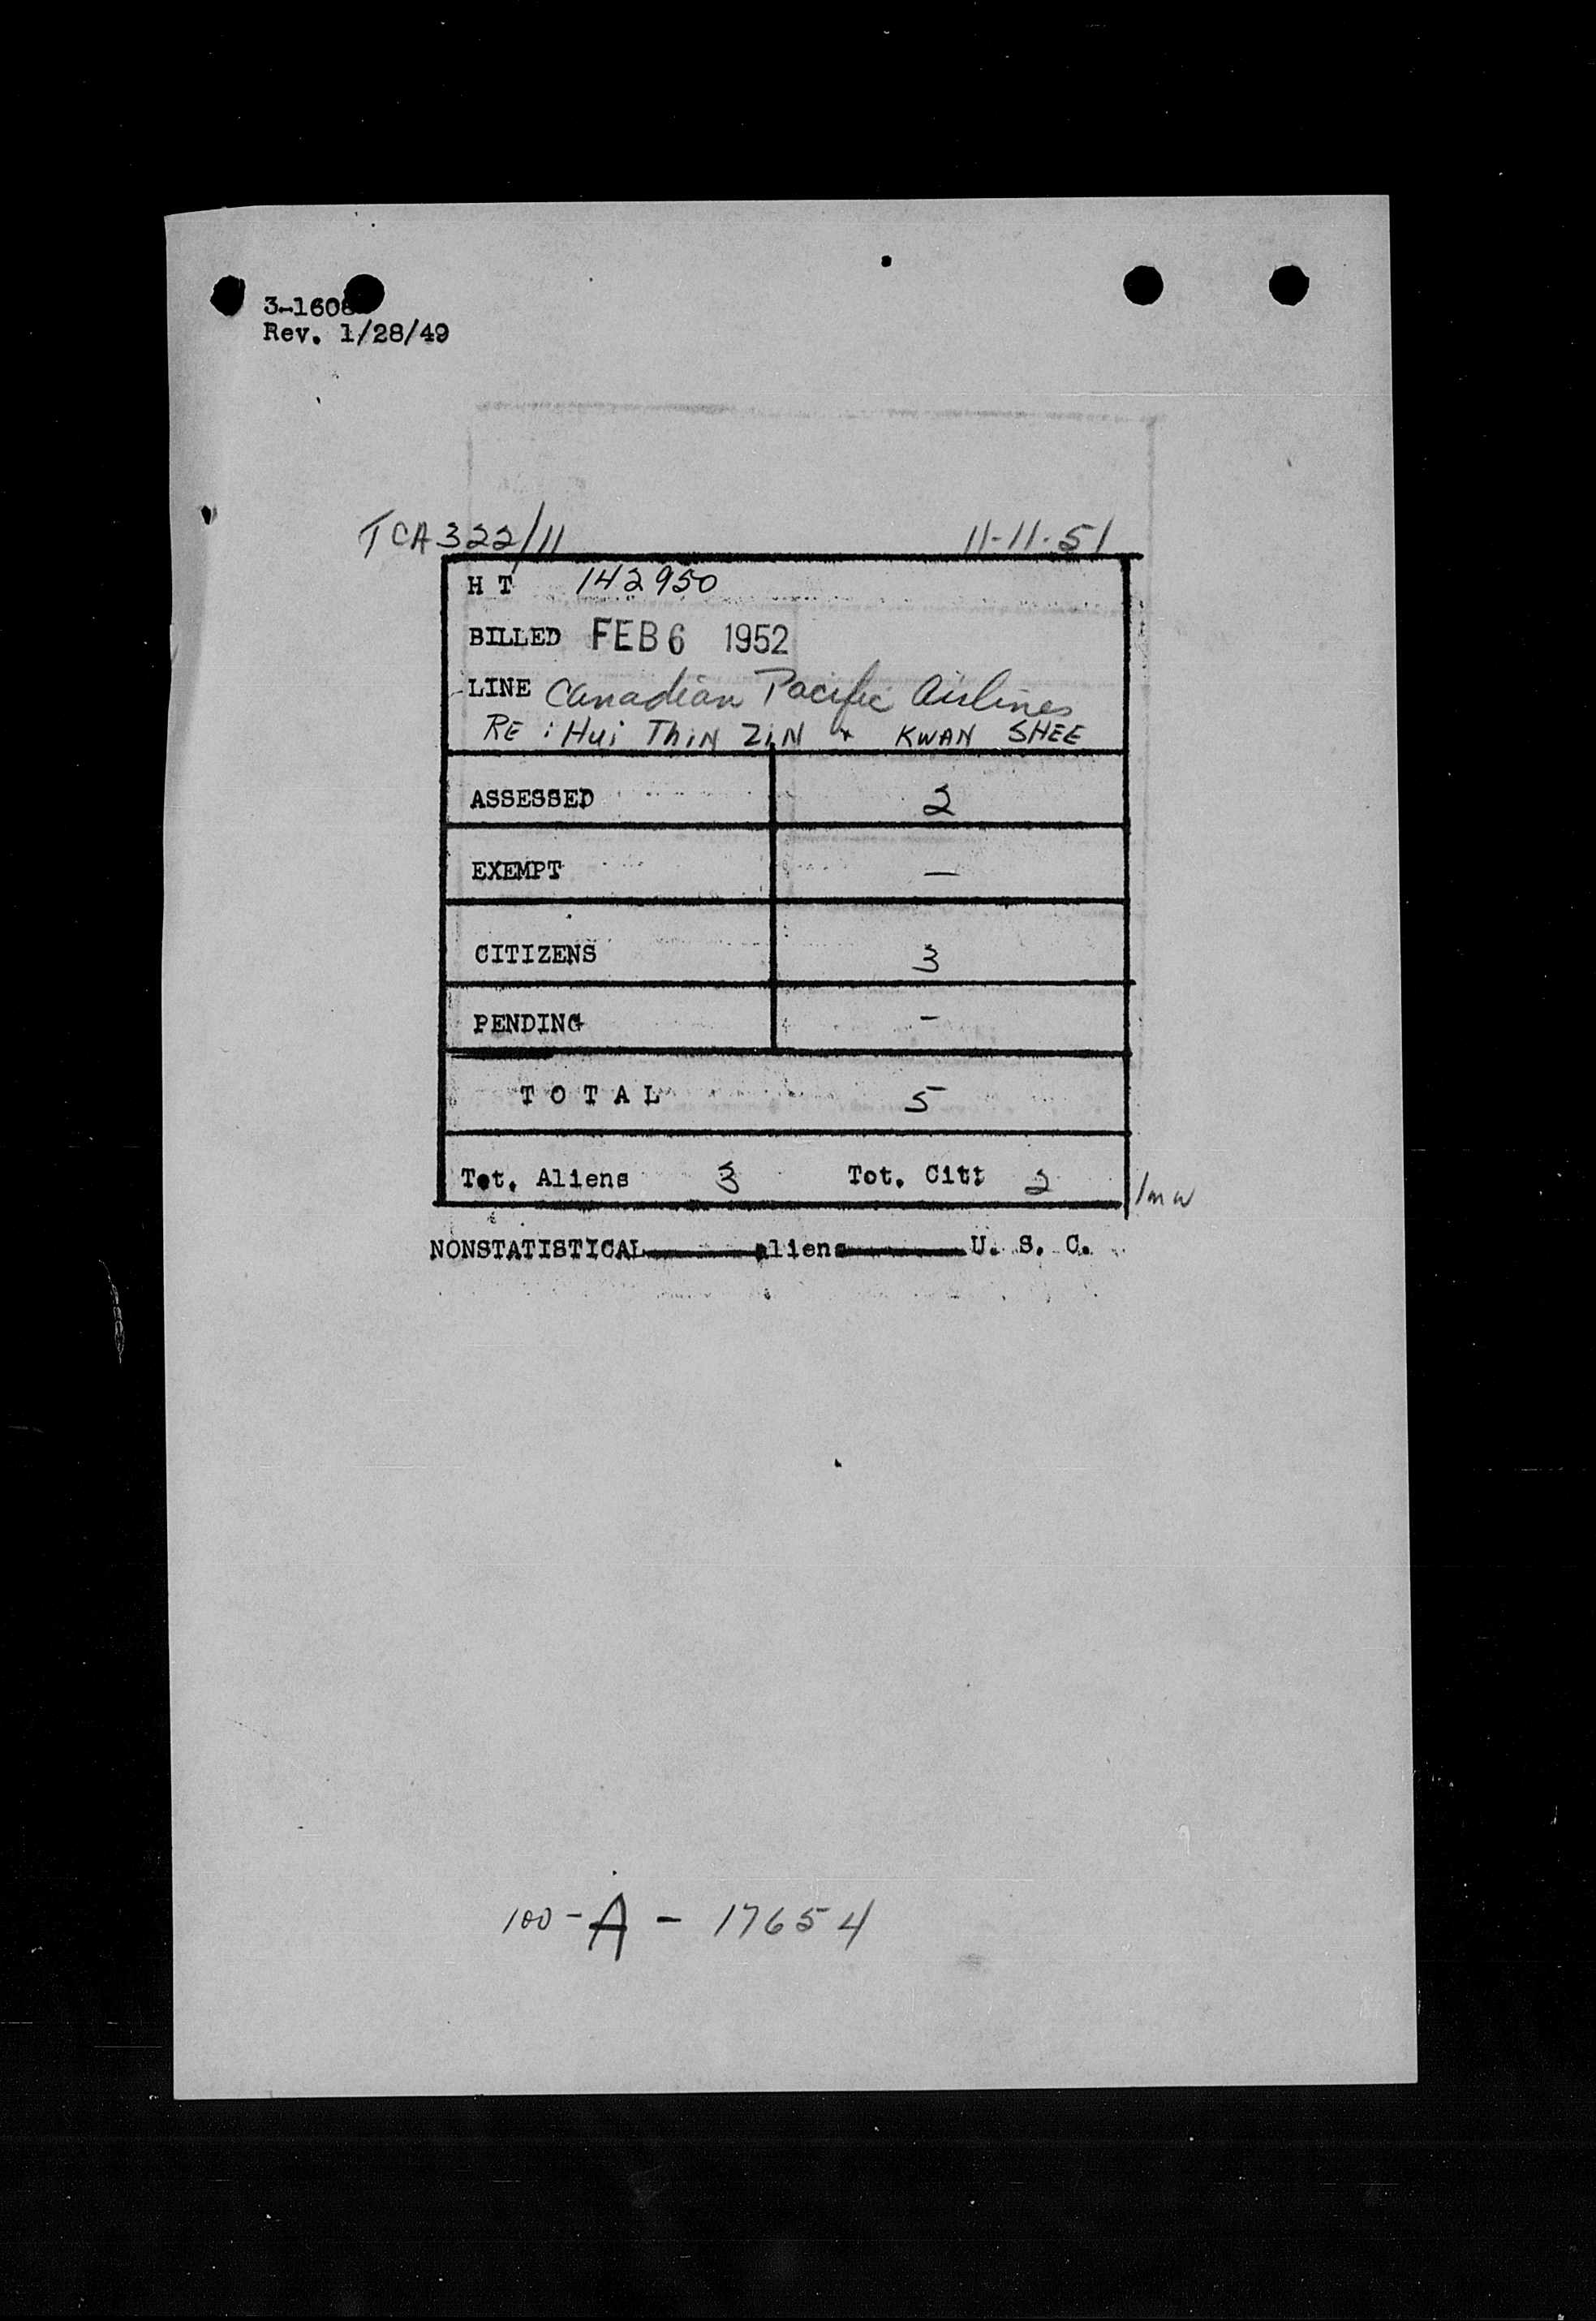 3-1608
Rev. 1/28/49
TCA 322/11 11-11-51
H T 142950
BILLED FEB 6 1952
LINE Canadian Pacific Airlines
RE : Hui Thin Zin + KWAN SHEE
ASSESSED 2
EXEMPT —
CITIZENS 3
PENDING -
T O T A L 5
Tot. Aliens 3 Tot. Citt 2
/mw
NONSTATISTICAL aliens U. S. C.
100-A-17654